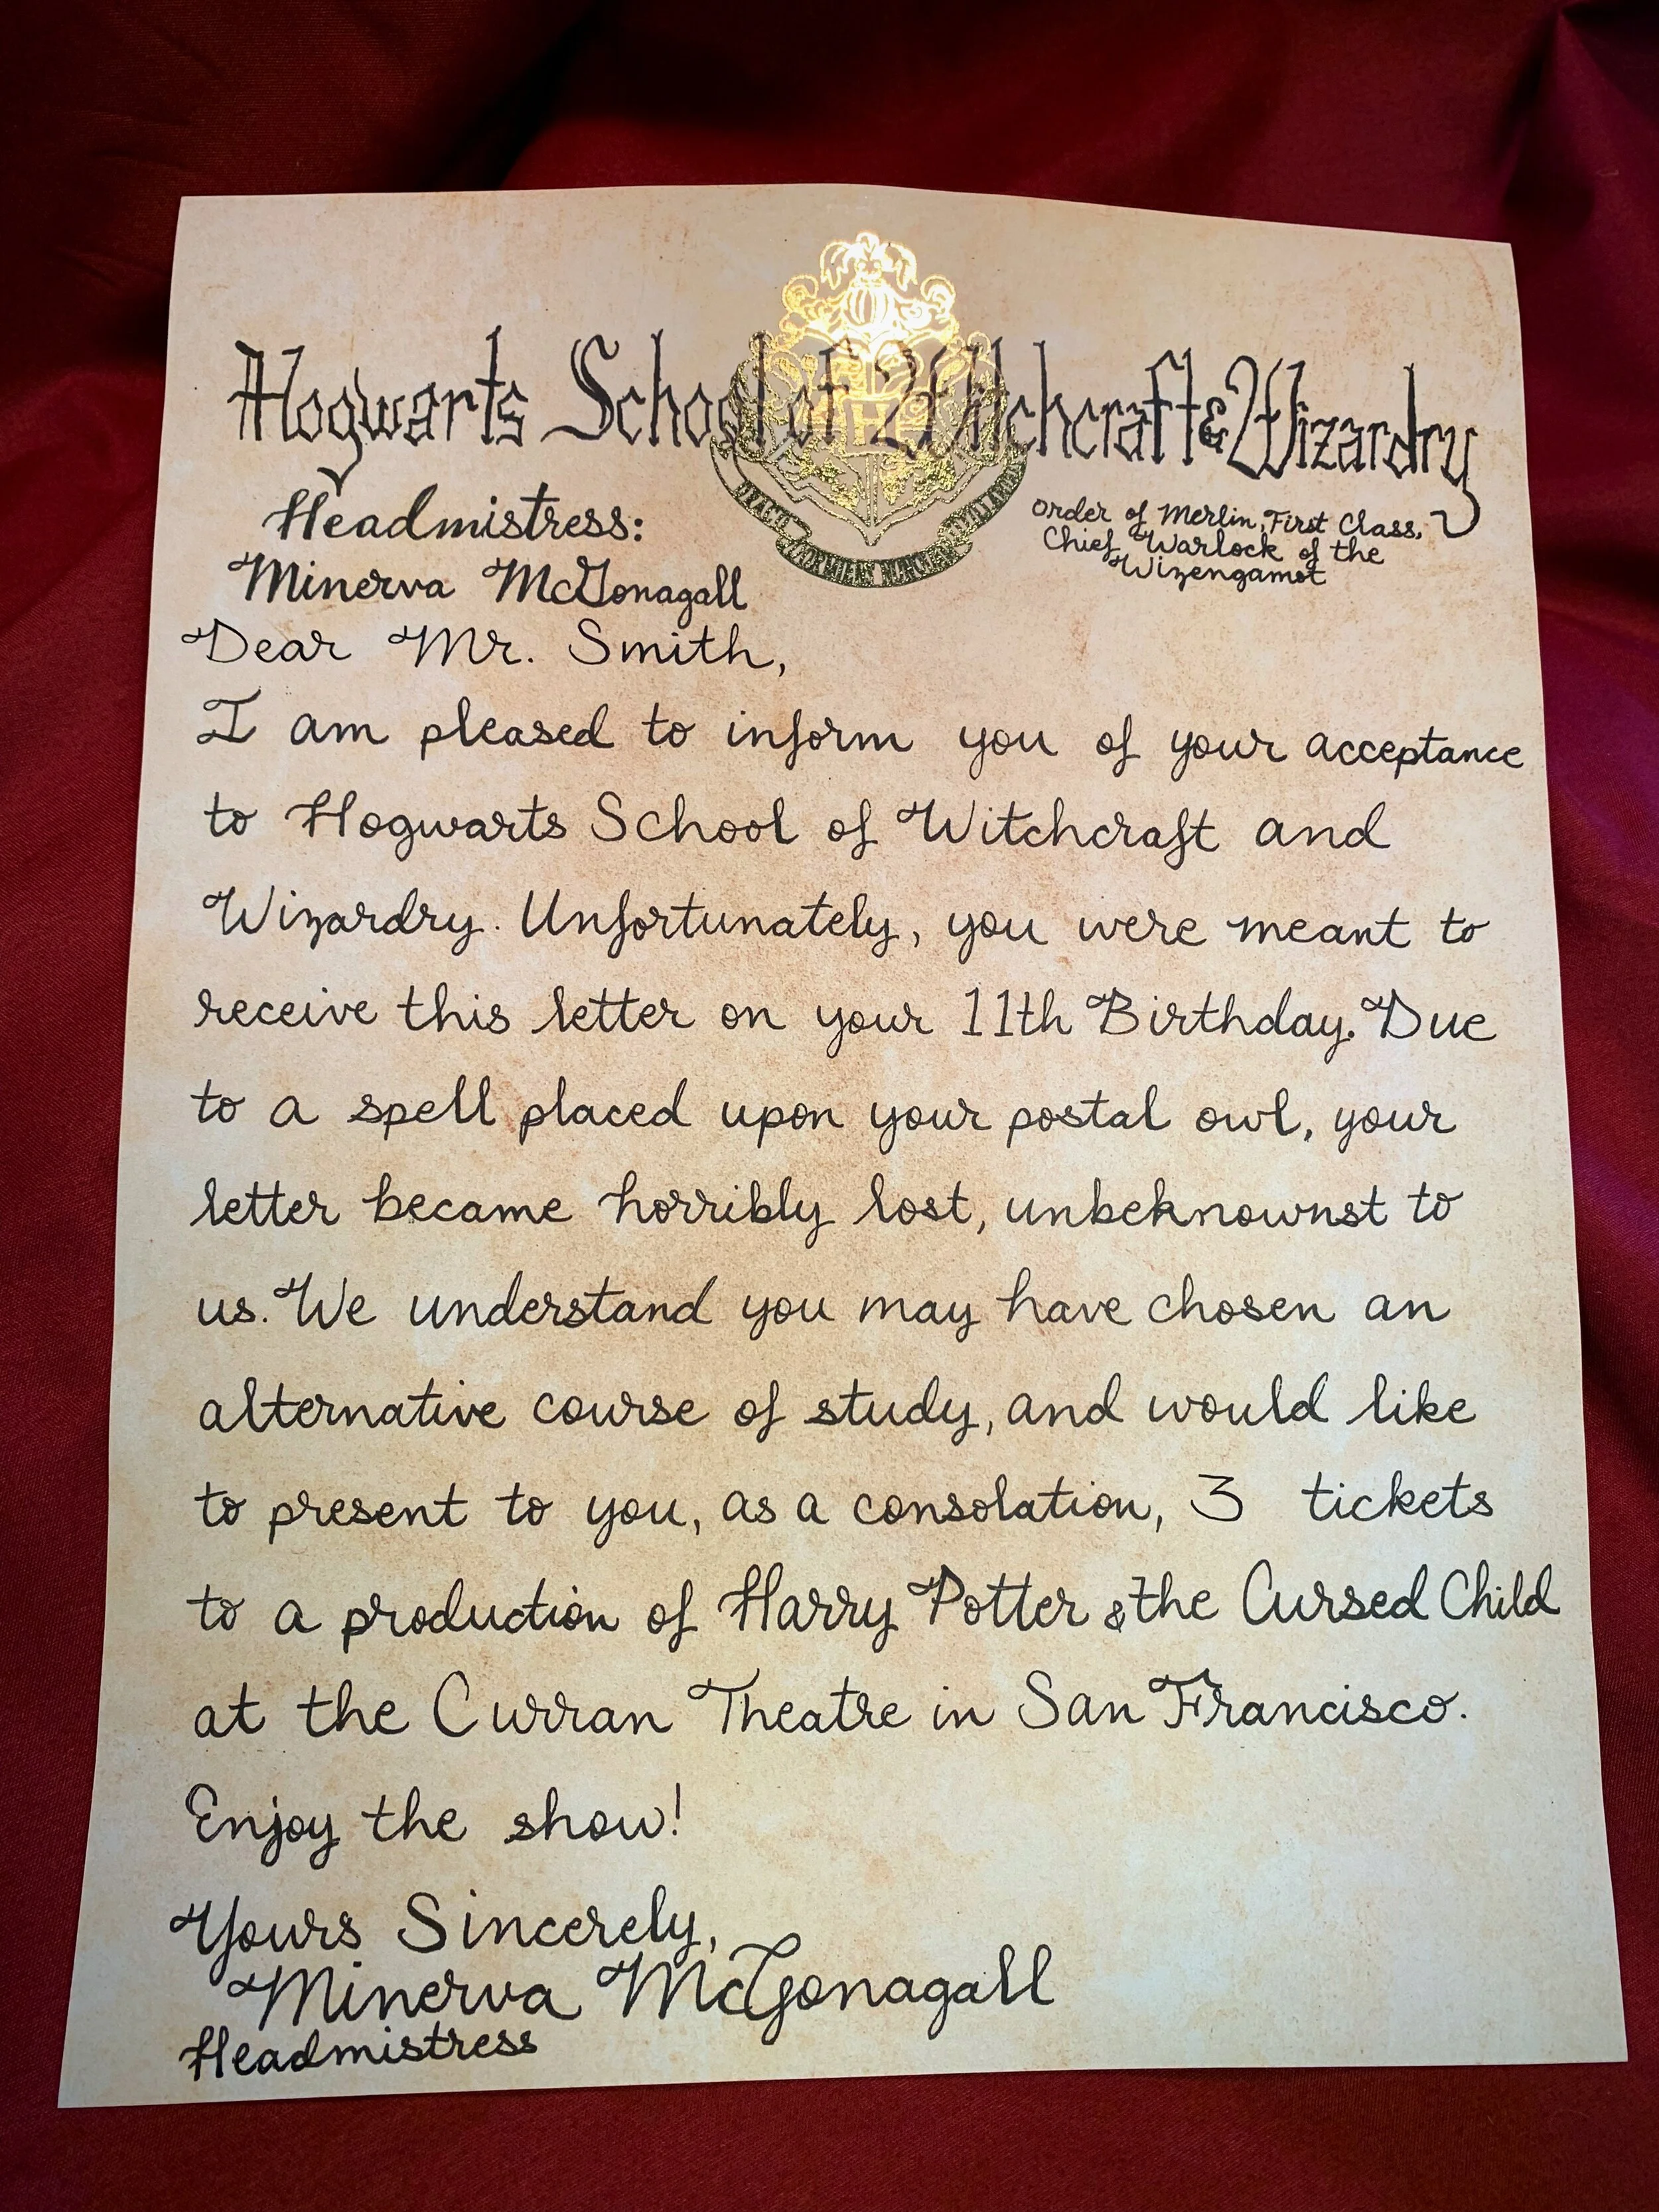 Hogwarts School of Witchcraft & Wizardry
Headmistress:
Minerva McGonagall
Order of Merlin, First Class,
Chief Warlock of the
Wizengamot
Dear Mr. Smith,
I am pleased to inform you of your acceptance
to Hogwarts School of Witchcraft and
Wizardry. Unfortunately, you were meant to
receive this letter on your 11th Birthday. Due
to a spell placed upon your postal owl, your
letter became horribly lost, unbeknownst to
us. We understand you may have chosen an
alternative course of study, and would like
to present to you, as a consolation, 3 tickets
to a production of Harry Potter & the Cursed Child
at the Curran Theatre in San Francisco.
Enjoy the show!
Yours Sincerely,
Minerva McGonagall
Headmistress